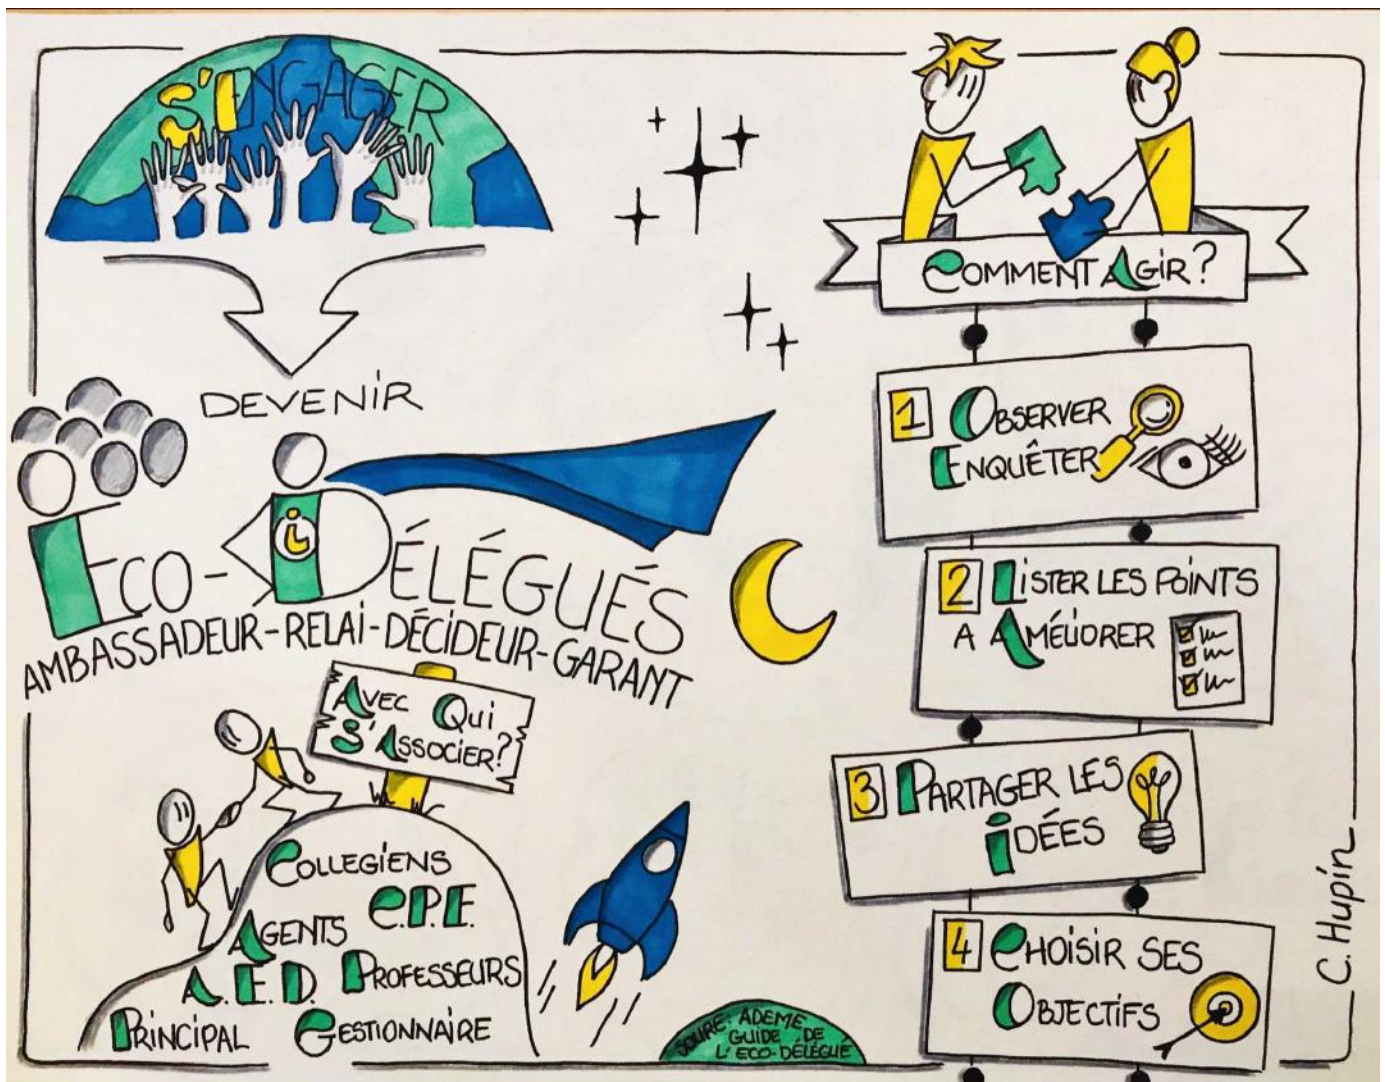 S'ENGAGER
DEVENIR
ECO-DÉLÉGUÉS
AMBASSADEUR-RELAI-DÉCIDEUR-GARANT
AVEC QUI
S'ASSOCIER?
COLLEGIENS
C.P.E.
AGENTS
A.E.D. PROFESSEURS
PRINCIPAL GESTIONNAIRE
SOURE: ADEME
GUIDE DE
L'ECO-DÉLÉGUÉ
COMMENT AGIR?
1 OBSERVER
ENQUÊTER
2 LISTER LES POINTS
A AMÉLIORER
3 PARTAGER LES
IDÉES
4 CHOISIR SES
OBJECTIFS
C. Hupin